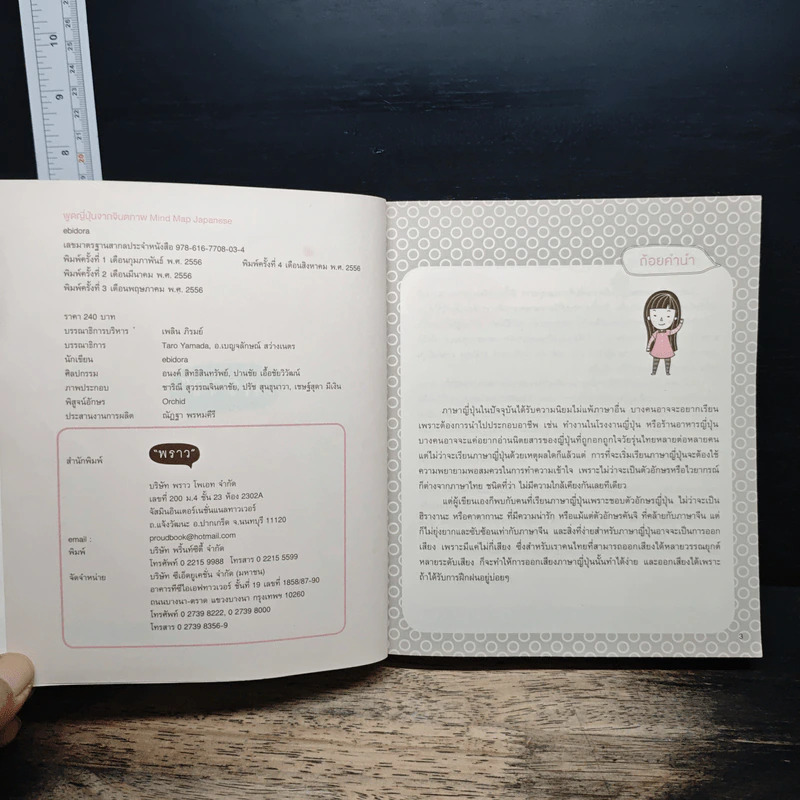 พูดญี่ปุ่นจากจินตภาพ Mind Map Japanese
ebidora
เลขมาตรฐานสากลประจำหนังสือ 978-616-7708-03-4
พิมพ์ครั้งที่ 1 เดือนกุมภาพันธ์ พ.ศ. 2556 พิมพ์ครั้งที่ 4 เดือนสิงหาคม พ.ศ. 2556
พิมพ์ครั้งที่ 2 เดือนมีนาคม พ.ศ. 2556
พิมพ์ครั้งที่ 3 เดือนพฤษภาคม พ.ศ. 2556
ราคา 240 บาท
บรรณาธิการบริหาร เพลิน ภิรมย์
บรรณาธิการ Taro Yamada, อ.เบญจลักษณ์ สว่างเนตร
นักเขียน ebidora
ศิลปกรรม อนงค์ สิทธิสินทรัพย์, ปานชัย เอื้อชัยวิวัฒน์
ภาพประกอบ ชาริณี สุวรรณจินดาชัย, ปรัช สุนธุนาวา, เชษฐ์สุดา มีเงิน
พิสูจน์อักษร Orchid
ประสานงานการผลิต ณัฏฐา พรหมศิริ
สำนักพิมพ์ "พราว"
บริษัท พราว โพเอท จำกัด
เลขที่ 200 ม.4 ชั้น 23 ห้อง 2302A
จัสมินอินเตอร์เนชั่นแนลทาวเวอร์
ถ.แจ้งวัฒนะ อ.ปากเกร็ด จ.นนทบุรี 11120
email : proudbook@hotmail.com
พิมพ์ บริษัท พริ้นท์ซิตี้ จำกัด
โทรศัพท์ 0 2215 9988 โทรสาร 0 2215 5599
จัดจำหน่าย บริษัท ซีเอ็ดยูเคชั่น จำกัด (มหาชน)
อาคารทีซีไอเอฟทาวเวอร์ ชั้นที่ 19 เลขที่ 1858/87-90
ถนนบางนา-ตราด แขวงบางนา กรุงเทพฯ 10260
โทรศัพท์ 0 2739 8222, 0 2739 8000
โทรสาร 0 2739 8356-9
ถ้อยคำนำ
ภาษาญี่ปุ่นในปัจจุบันได้รับความนิยมไม่แพ้ภาษาอื่น บางคนอาจจะอยากเรียน
เพราะต้องการนำไปประกอบอาชีพ เช่น ทำงานในโรงงานญี่ปุ่น หรือร้านอาหารญี่ปุ่น
บางคนอาจจะแค่อยากอ่านนิตยสารของญี่ปุ่นที่ถูกอกถูกใจวัยรุ่นไทยหลายต่อหลายคน
แต่ไม่ว่าจะเรียนภาษาญี่ปุ่นด้วยเหตุผลใดก็แล้วแต่ การที่จะเริ่มเรียนภาษาญี่ปุ่นจะต้องใช้
ความพยายามพอสมควรในการทำความเข้าใจ เพราะไม่ว่าจะเป็นตัวอักษรหรือไวยากรณ์
ก็ต่างจากภาษาไทย ชนิดที่ว่า ไม่มีความใกล้เคียงกันเลยทีเดียว
แต่ผู้เขียนเองก็พบกับคนที่เรียนภาษาญี่ปุ่นเพราะชอบตัวอักษรญี่ปุ่น ไม่ว่าจะเป็น
ฮิรางานะ หรือคาตากานะ ที่มีความน่ารัก หรือแม้แต่ตัวอักษรคันจิ ที่คล้ายกับภาษาจีน แต่
ก็ไม่ยุ่งยากและซับซ้อนเท่ากับภาษาจีน และสิ่งที่ง่ายสำหรับภาษาญี่ปุ่นอาจจะเป็นการออก
เสียง เพราะมีแค่ไม่กี่เสียง ซึ่งสำหรับเราคนไทยที่สามารถออกเสียงได้หลายวรรณยุกต์
หลายระดับเสียง ก็จะทำให้การออกเสียงภาษาญี่ปุ่นนั้นทำได้ง่าย และออกเสียงได้เพราะ
ถ้าได้รับการฝึกฝนอยู่บ่อยๆ
3
10
9
8